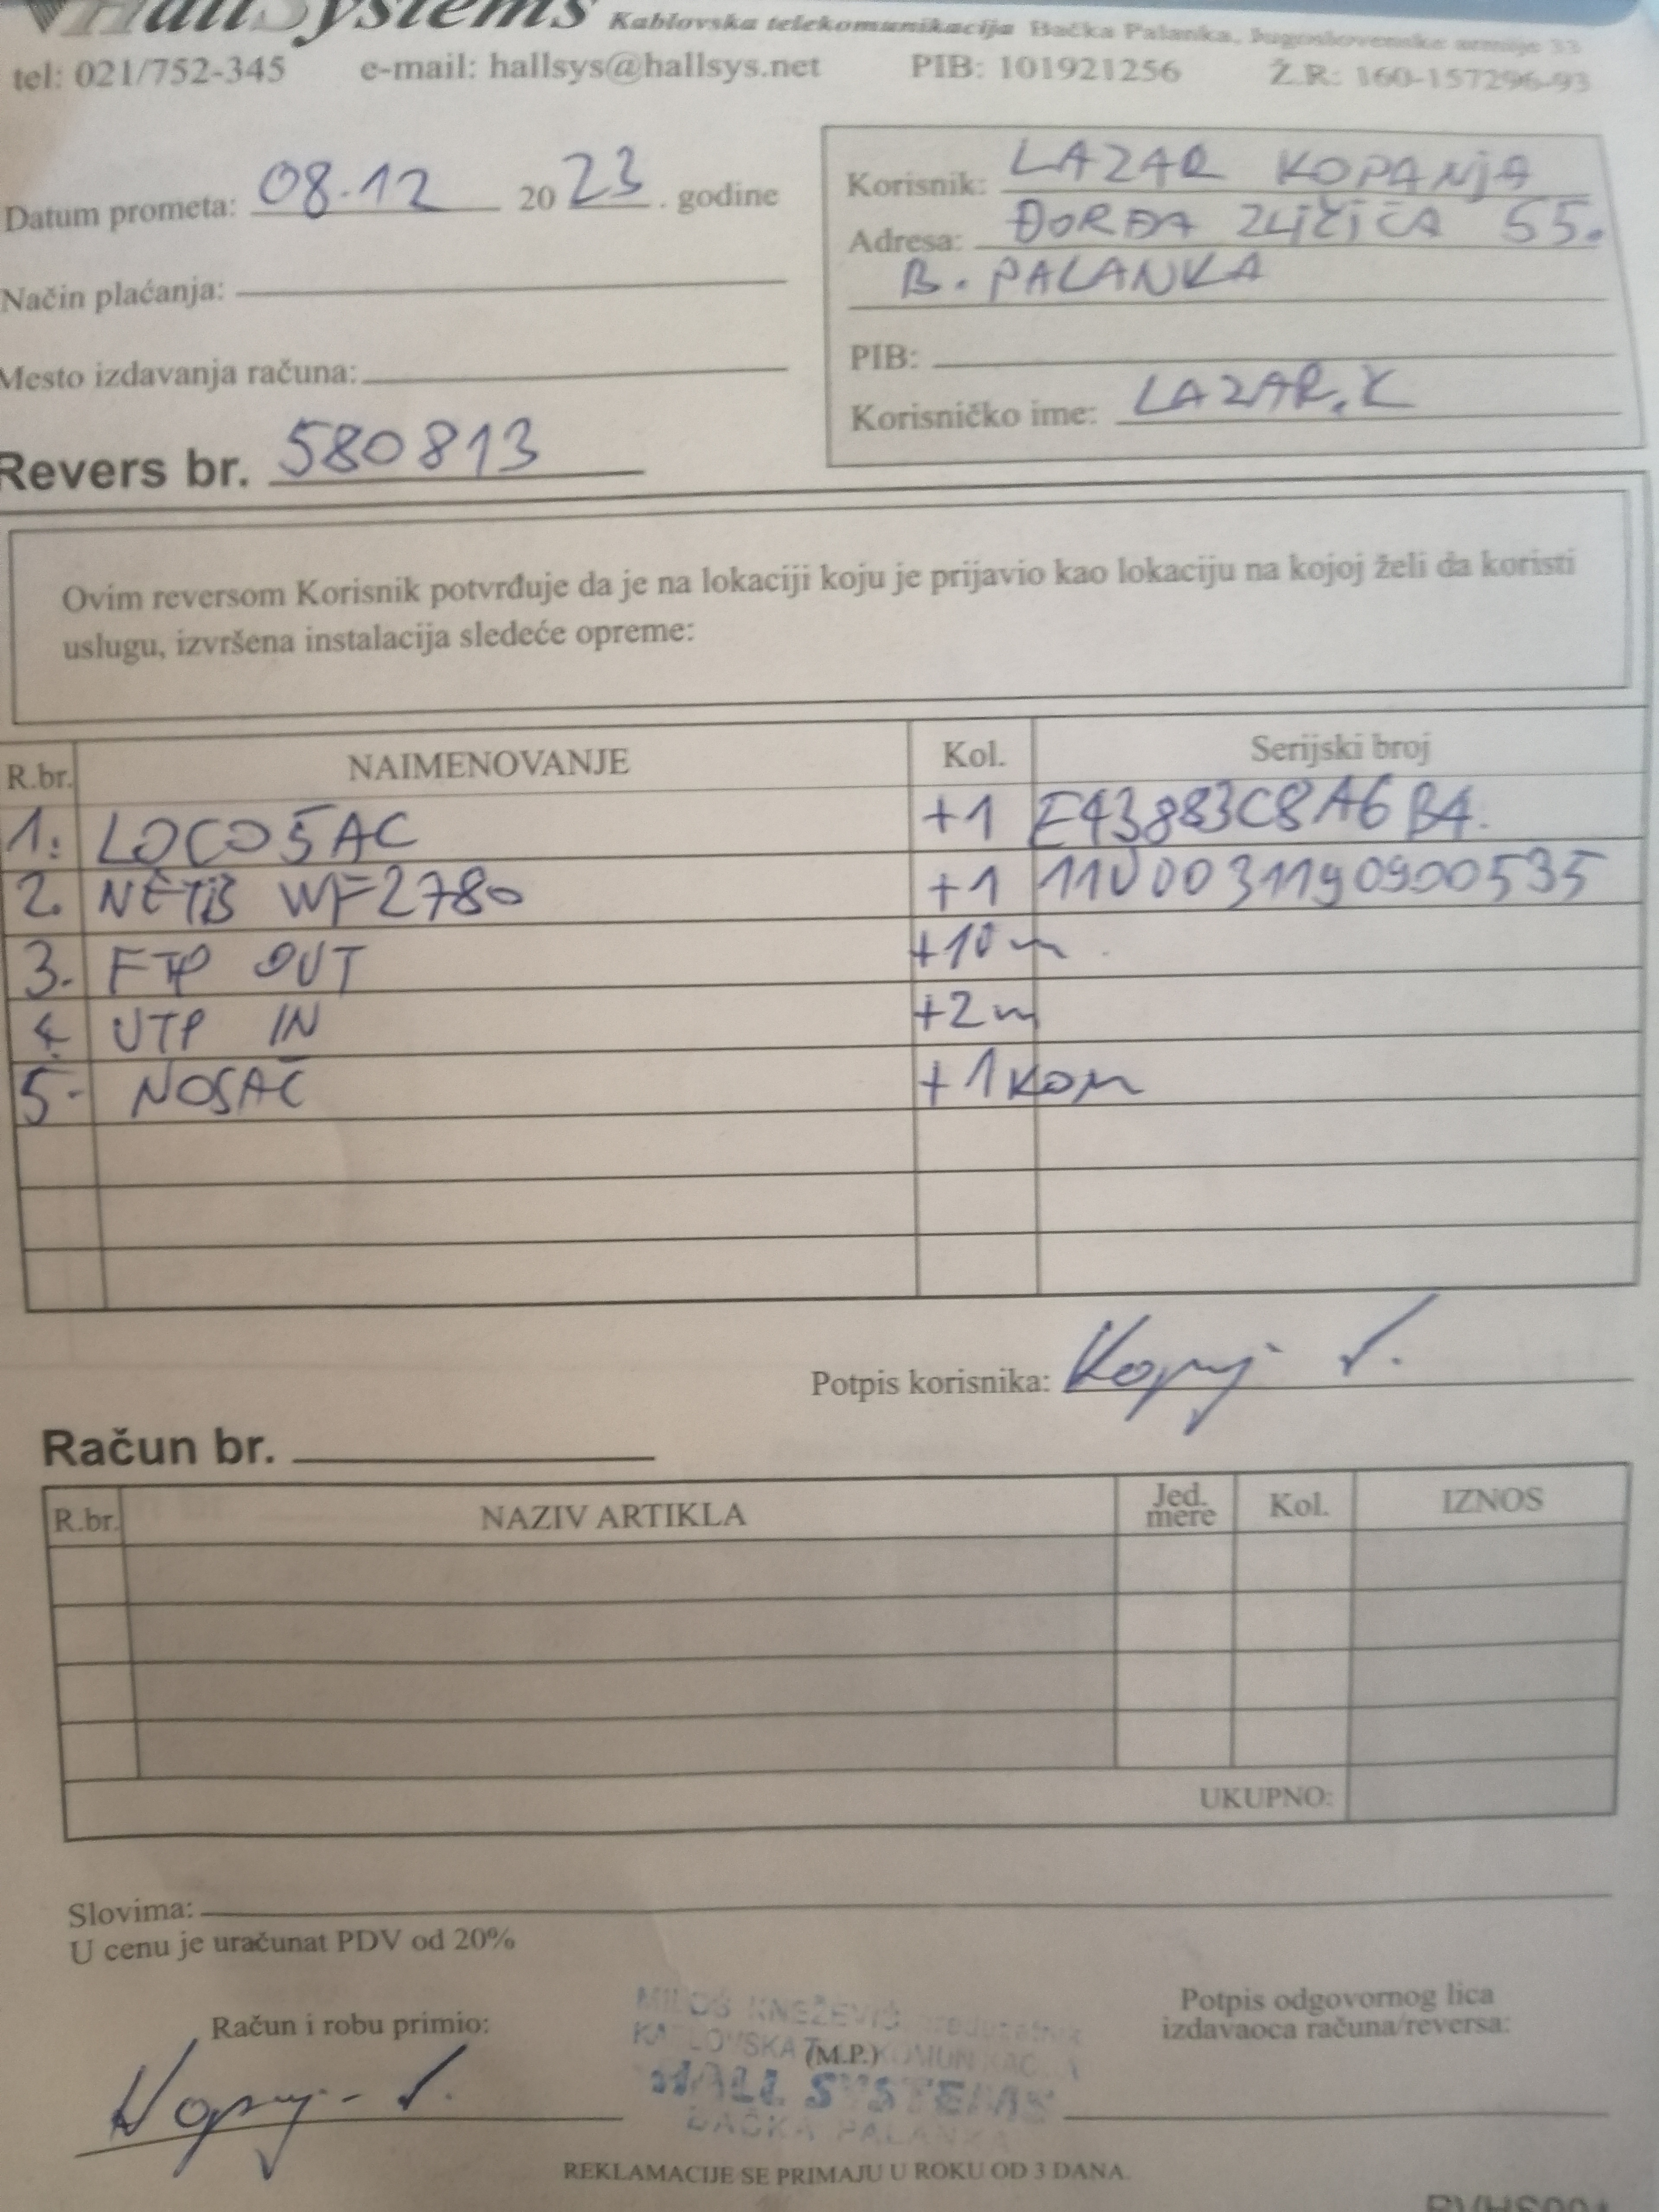 HallSystems Kablovska telekomunikacija Bačka Palanka, Jugoslovenske armije 33
tel: 021/752-345 e-mail: hallsys@hallsys.net PIB: 101921256 Ž.R: 160-157296-93
Datum prometa: 08.12 2023. godine
Način plaćanja:
Mesto izdavanja računa:
Revers br. 580813
Korisnik: LAZAR KOPANjA
Adresa: ĐORĐA ZLIČIĆA 55.
B. PALANKA
PIB:
Korisničko ime: LAZAR.K
Ovim reversom Korisnik potvrđuje da je na lokaciji koju je prijavio kao lokaciju na kojoj želi da koristi
uslugu, izvršena instalacija sledeće opreme:
R.br. NAIMENOVANJE Kol. Serijski broj
1. LOCO5AC +1 E43883C8A6B4.
2. NETIS WF2780 +1 11U0031190900535
3. FTP OUT +10m
4. UTP IN +2m
5. NOSAČ +1 kom
Potpis korisnika:
Račun br.
R.br. NAZIV ARTIKLA Jed. mere Kol. IZNOS
UKUPNO:
Slovima:
U cenu je uračunat PDV od 20%
Račun i robu primio:
MILOŠ KNEŽEVIĆ preduzetnik
KABLOVSKA TELEKOMUNIKACIJA
(M.P.)
HALL SYSTEMS
BAČKA PALANKA
Potpis odgovornog lica
izdavaoca računa/reversa:
REKLAMACIJE SE PRIMAJU U ROKU OD 3 DANA.